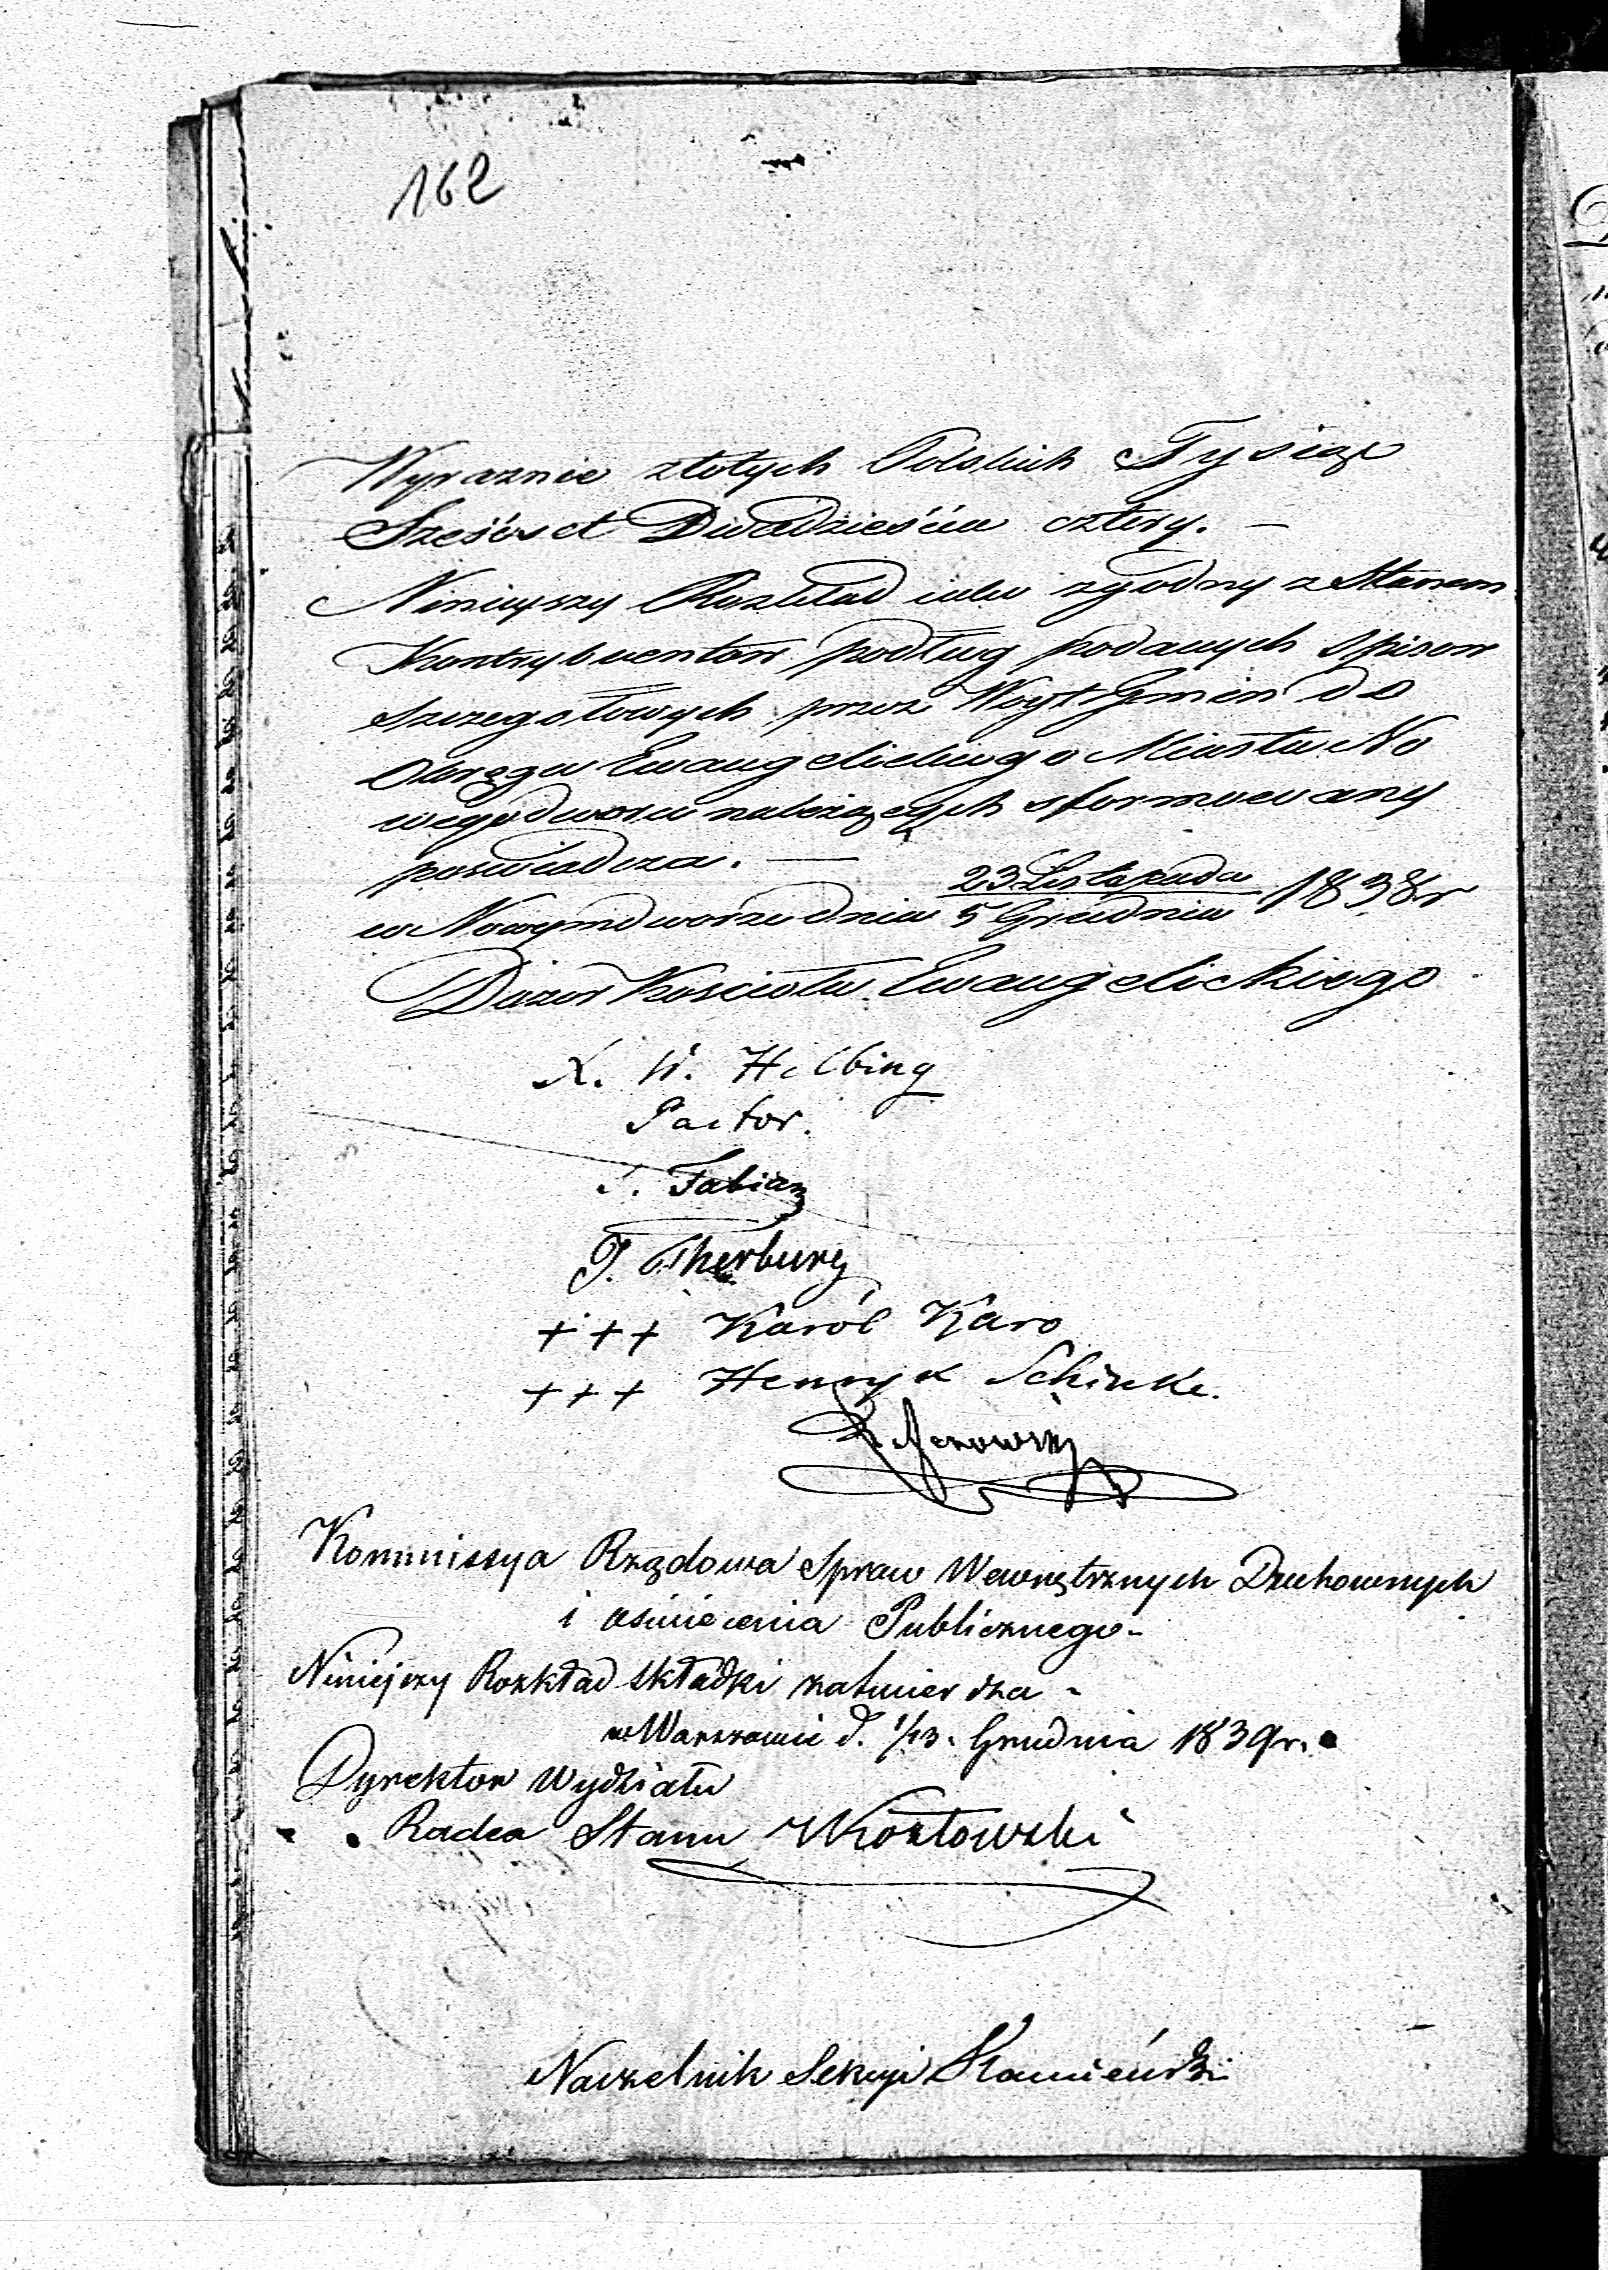 162
Wyraznie złotych Polskich Tysiąc
Sześćset Dwadzieścia cztery. —
Ninieyszy Rozkład iako zgodny z Stanem
Kontrybuentow podług podanych Spisow
szczegołowych przez Woyt Gmin do
Okręgu Ewangelickiego Miasta No
wegodworu należących sformowany
poswiadcza. —
w Nowymdworze dnia 23 Listopada / 5 Grudnia 1838 r
Dozor Koscioła Ewangelickiego
K. W. Helbing
Pastor.
Fabian
Therburg
+++ Karól Karo
+++ Henryk Schinke.
Kommissya Rządowa Spraw Wewnętrznych Duchownych
i Oświecenia Publicznego -
Niniejszy Rozkład składki zatwierdza -
w Warszawie d. 1/13. Grudnia 1839 r.
Dyrektor Wydziału
Radca Stanu Kozłowski
Naczelnik Sekcyi Kamieński